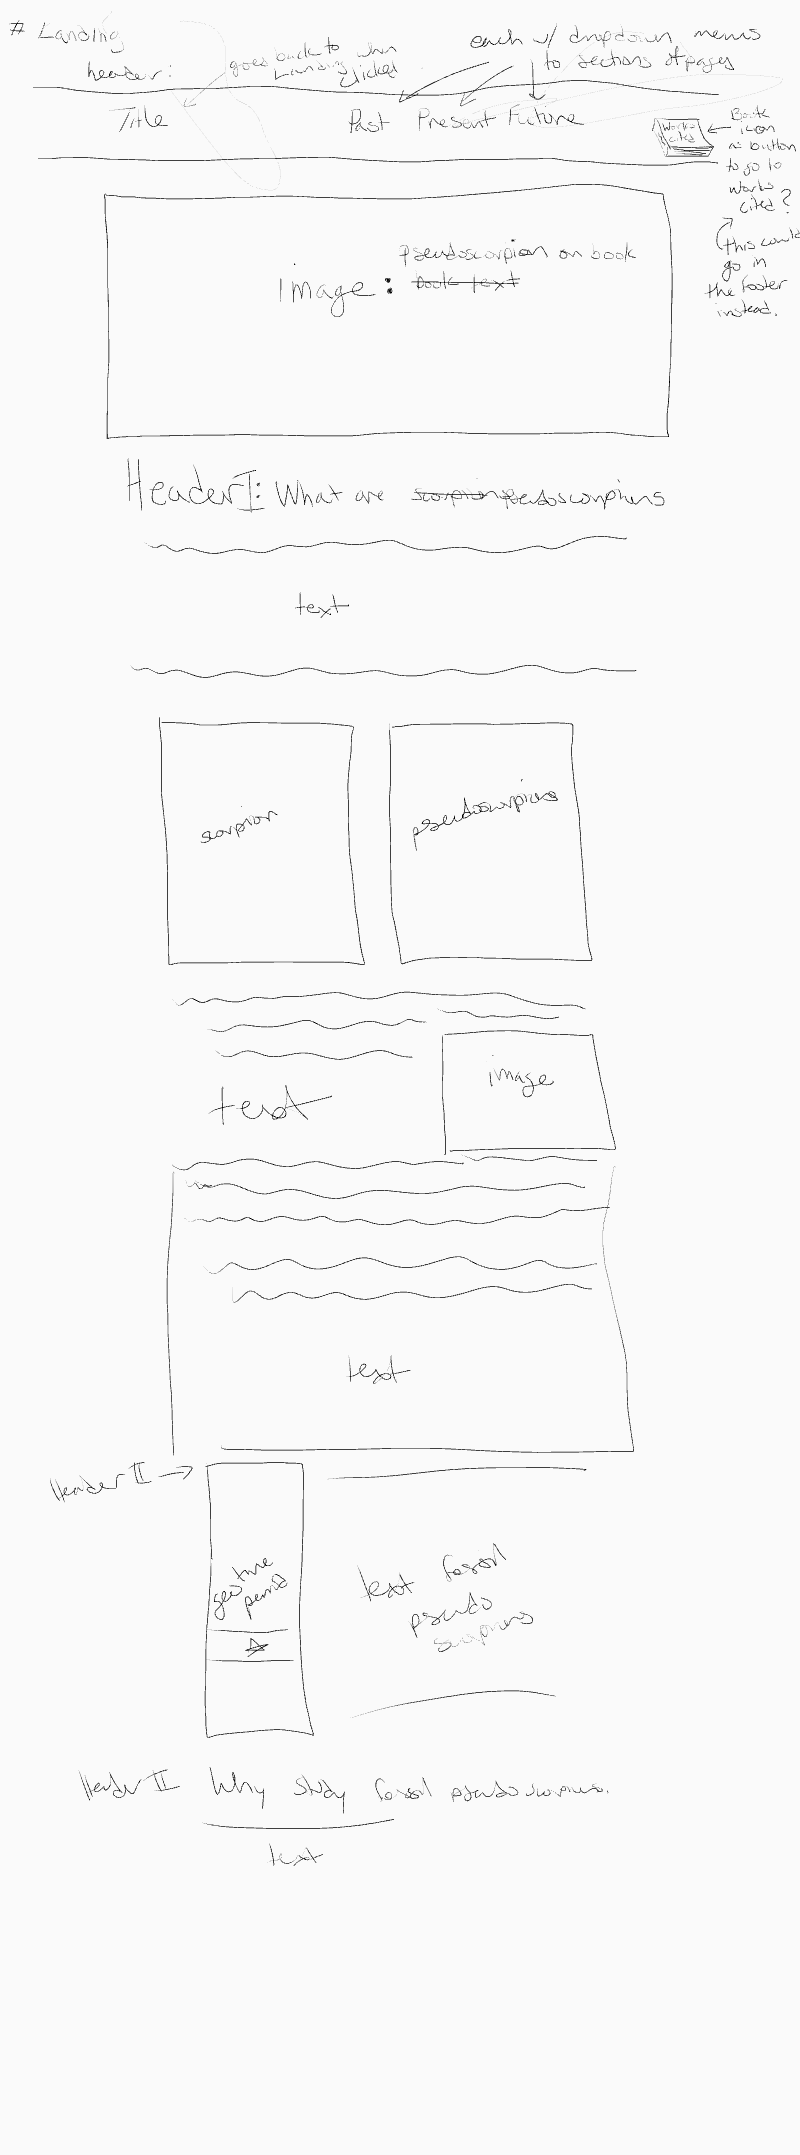 # Landing
header:
goes back to
Landing when
clicked
each w/ dropdown menus
to sections of pages
Title
Past Present Future
Works
cited
Book
icon
as button
to go to
works
cited?
this could
go in
the footer
instead.
image: pseudoscorpion on book
book text
Header I: What are scorpion pseudoscorpions
text
scorpion
pseudoscorpions
text
image
text
Header II
geo time
period
text fossil
pseudo
scorpions
Header II Why study fossil pseudoscorpions.
text